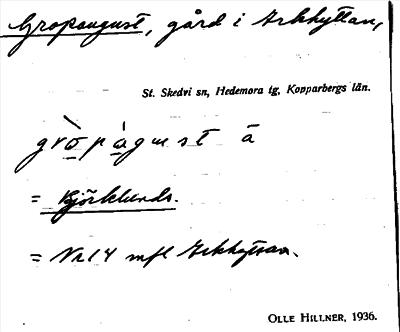 Gropaugust, gård i Arkhyttan,
St. Skedvi sn, Hedemora tg, Kopparbergs län.
gròpàgust ā
= Björklunds.
= Nr 14 mfl Arkhyttan.
OLLE HILLNER, 1936.